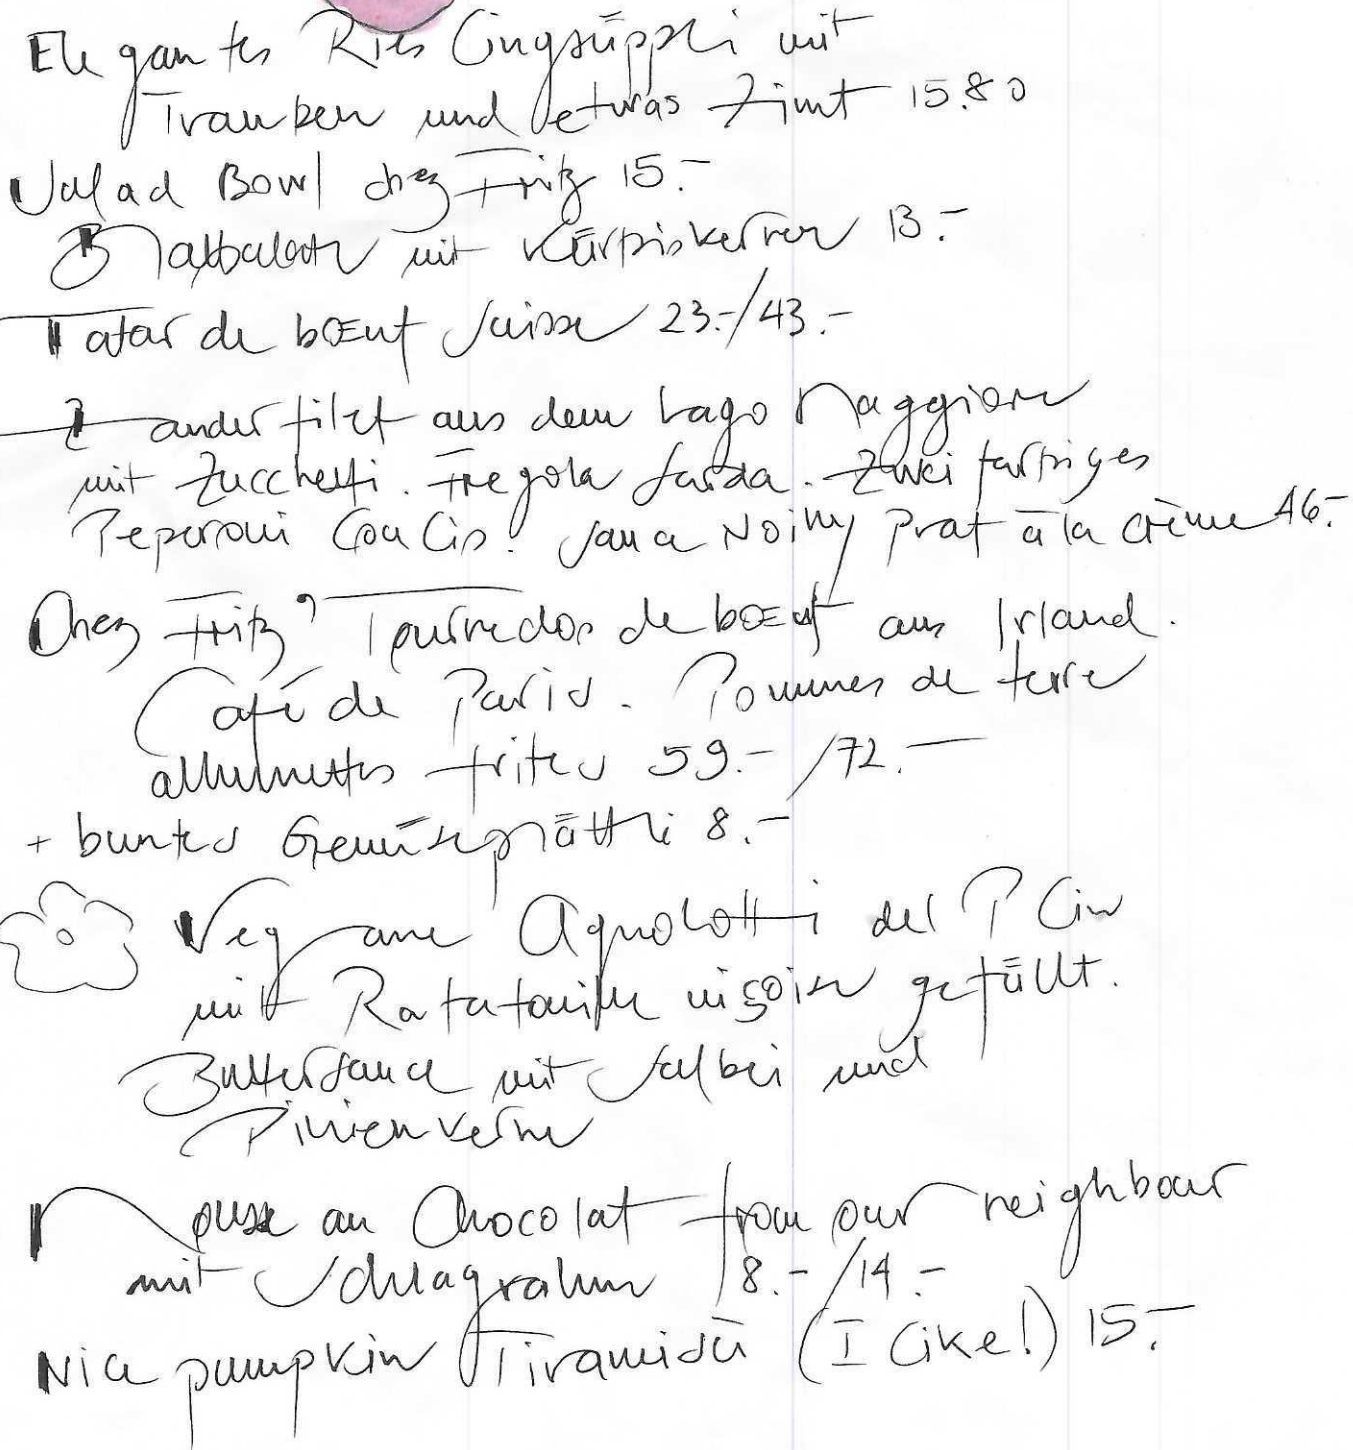 Elegantes Rieslingsüppli mit
Trauben und etwas Zimt 15.80
Salad Bowl chez Fritz 15.-
Blattsalate mit Kürbiskernen 13.-
Tatar de bœuf Suisse 23.-/43.-
Zanderfilet aus dem Lago Maggiore
mit Zucchetti. Fregola Sarda. Zweifarbiges
Peperoni Coulis. Sauce Noilly Prat à la crème 46.-
Chez Fritz' Tournedos de bœuf aus Irland.
Café de Paris. Pommes de terre
allumettes frites 59.- /72.-
+ buntes Gemüseplättli 8.-
Vegane Agnolotti del Plin
mit Ratatouille niçoise gefüllt.
Buttersauce mit Salbei und
Pinienkerne
Mousse au Chocolat from our neighbour
mit Schlagrahm 8.-/14.-
Nice pumpkin Tiramisù (I like!) 15.-